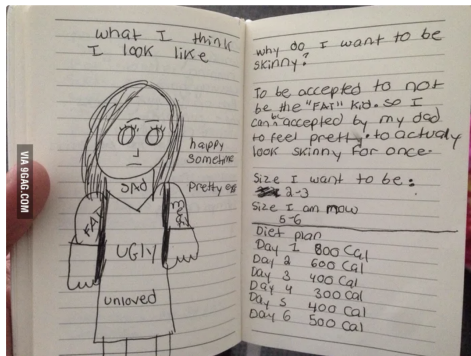 what I think
I look like
happy
sometime
pretty eyes
SAD
FAT
FAT
UGLY
unloved
why do I want to be
skinny?
To be accepted to not
be the "FAT" kid. so I
can be accepted by my dad
to feel pretty. to actualy
look skinny for once.
Size I want to be:
2-3
Size I am now
5-6
Diet plan
Day 1 800 Cal
Day 2 600 Cal
Day 3 400 Cal
Day 4 300 Cal
Day 5 400 Cal
Day 6 500 Cal
VIA 9GAG.COM